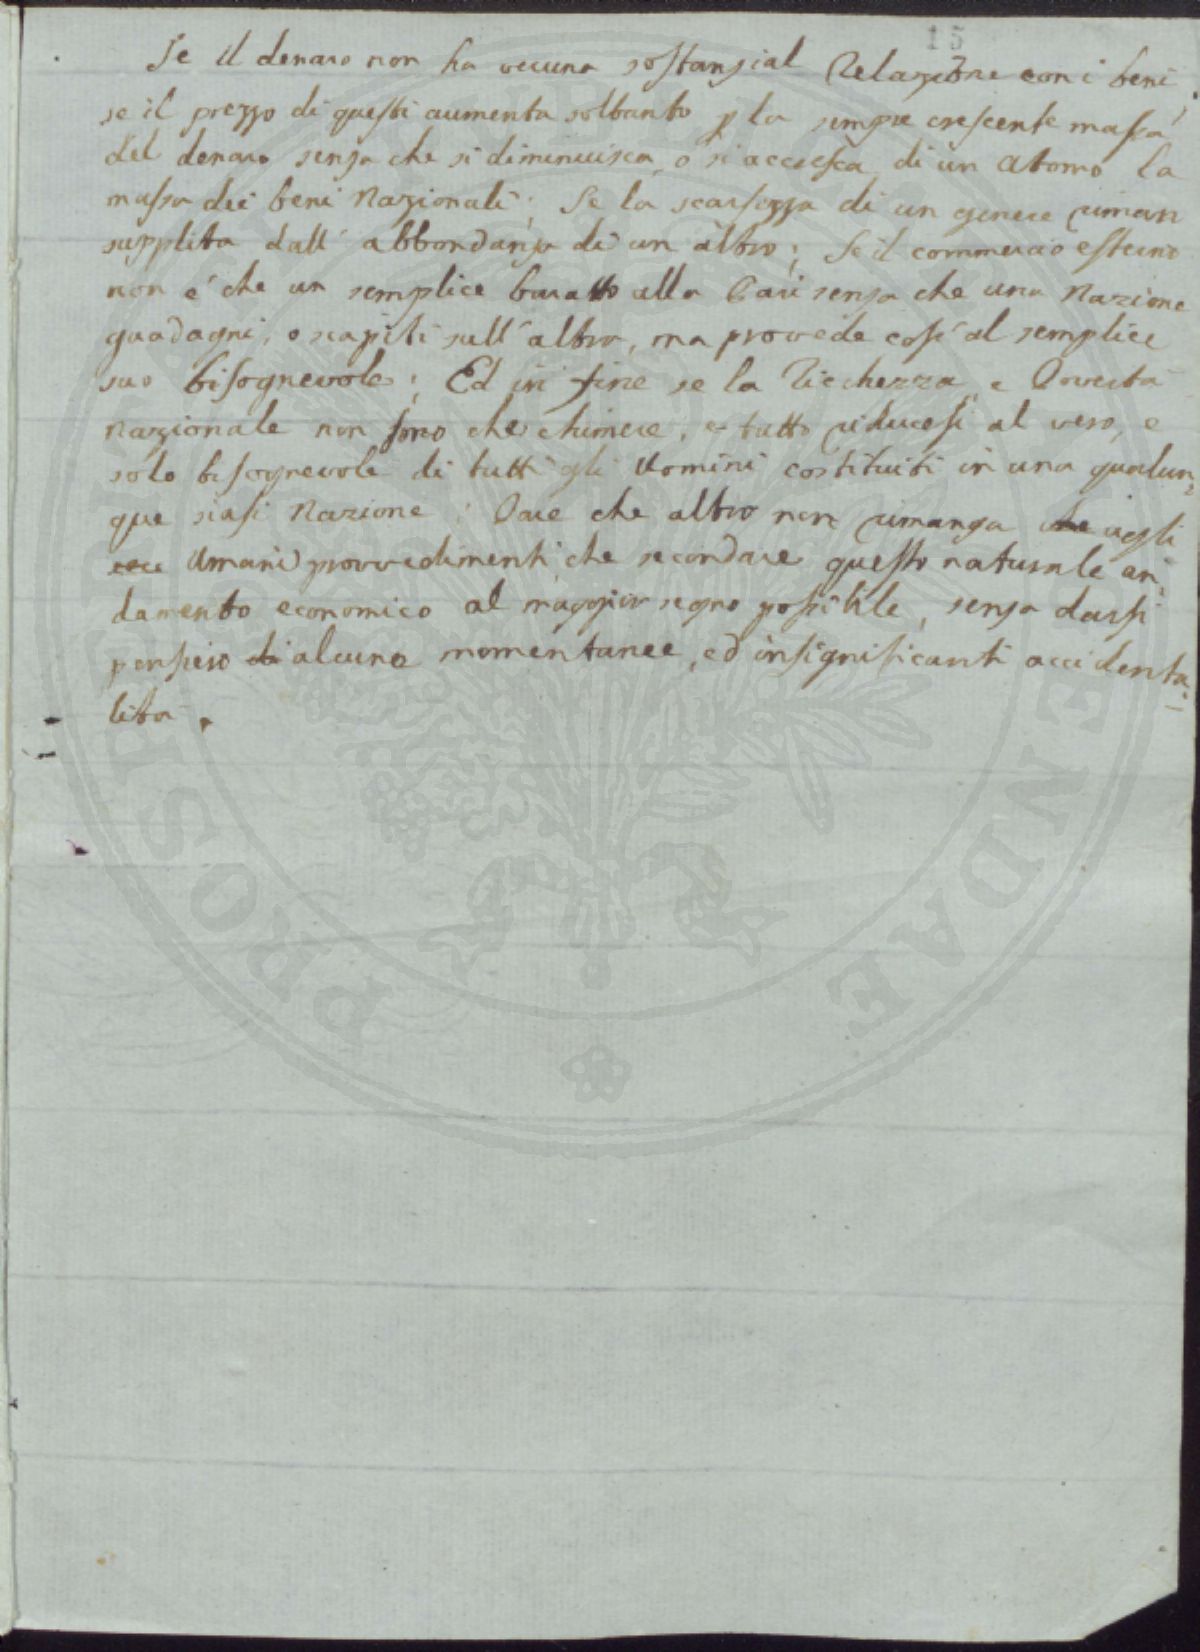 15
Se il denaro non ha veruna sostanzial Relazione con i beni;
se il prezzo di questi aumenta soltanto p la sempre crescente massa
del denaro senza che si diminuisca, o si accresca di un atomo la
massa dei beni Nazionali; Se la scarsezza di un genere riman
supplita dall' abbondanza di un altro; Se il commercio esterno
non é che un semplice baratto alla Pari senza che una Nazione
guadagni, o scapiti sull' altra, ma provede così al semplice
suo bisognevole; Ed in fine se la Ricchezza, e Povertà
Nazionale non sono che chimere, e tutto riducesi al vero, e
solo bisognevole di tutti gli Uomini costituiti in una qualun=
que siasi Nazione: Pare che altro non rimanga agli
Umani provvedimenti, che secondare questo naturale an=
damento economico al maggior segno possibile, senza darsi
pensiero di alcune momentanee, ed insignificanti accidenta=
lità.
PUBLICAE
PROSPERITATI
AUGENDAE